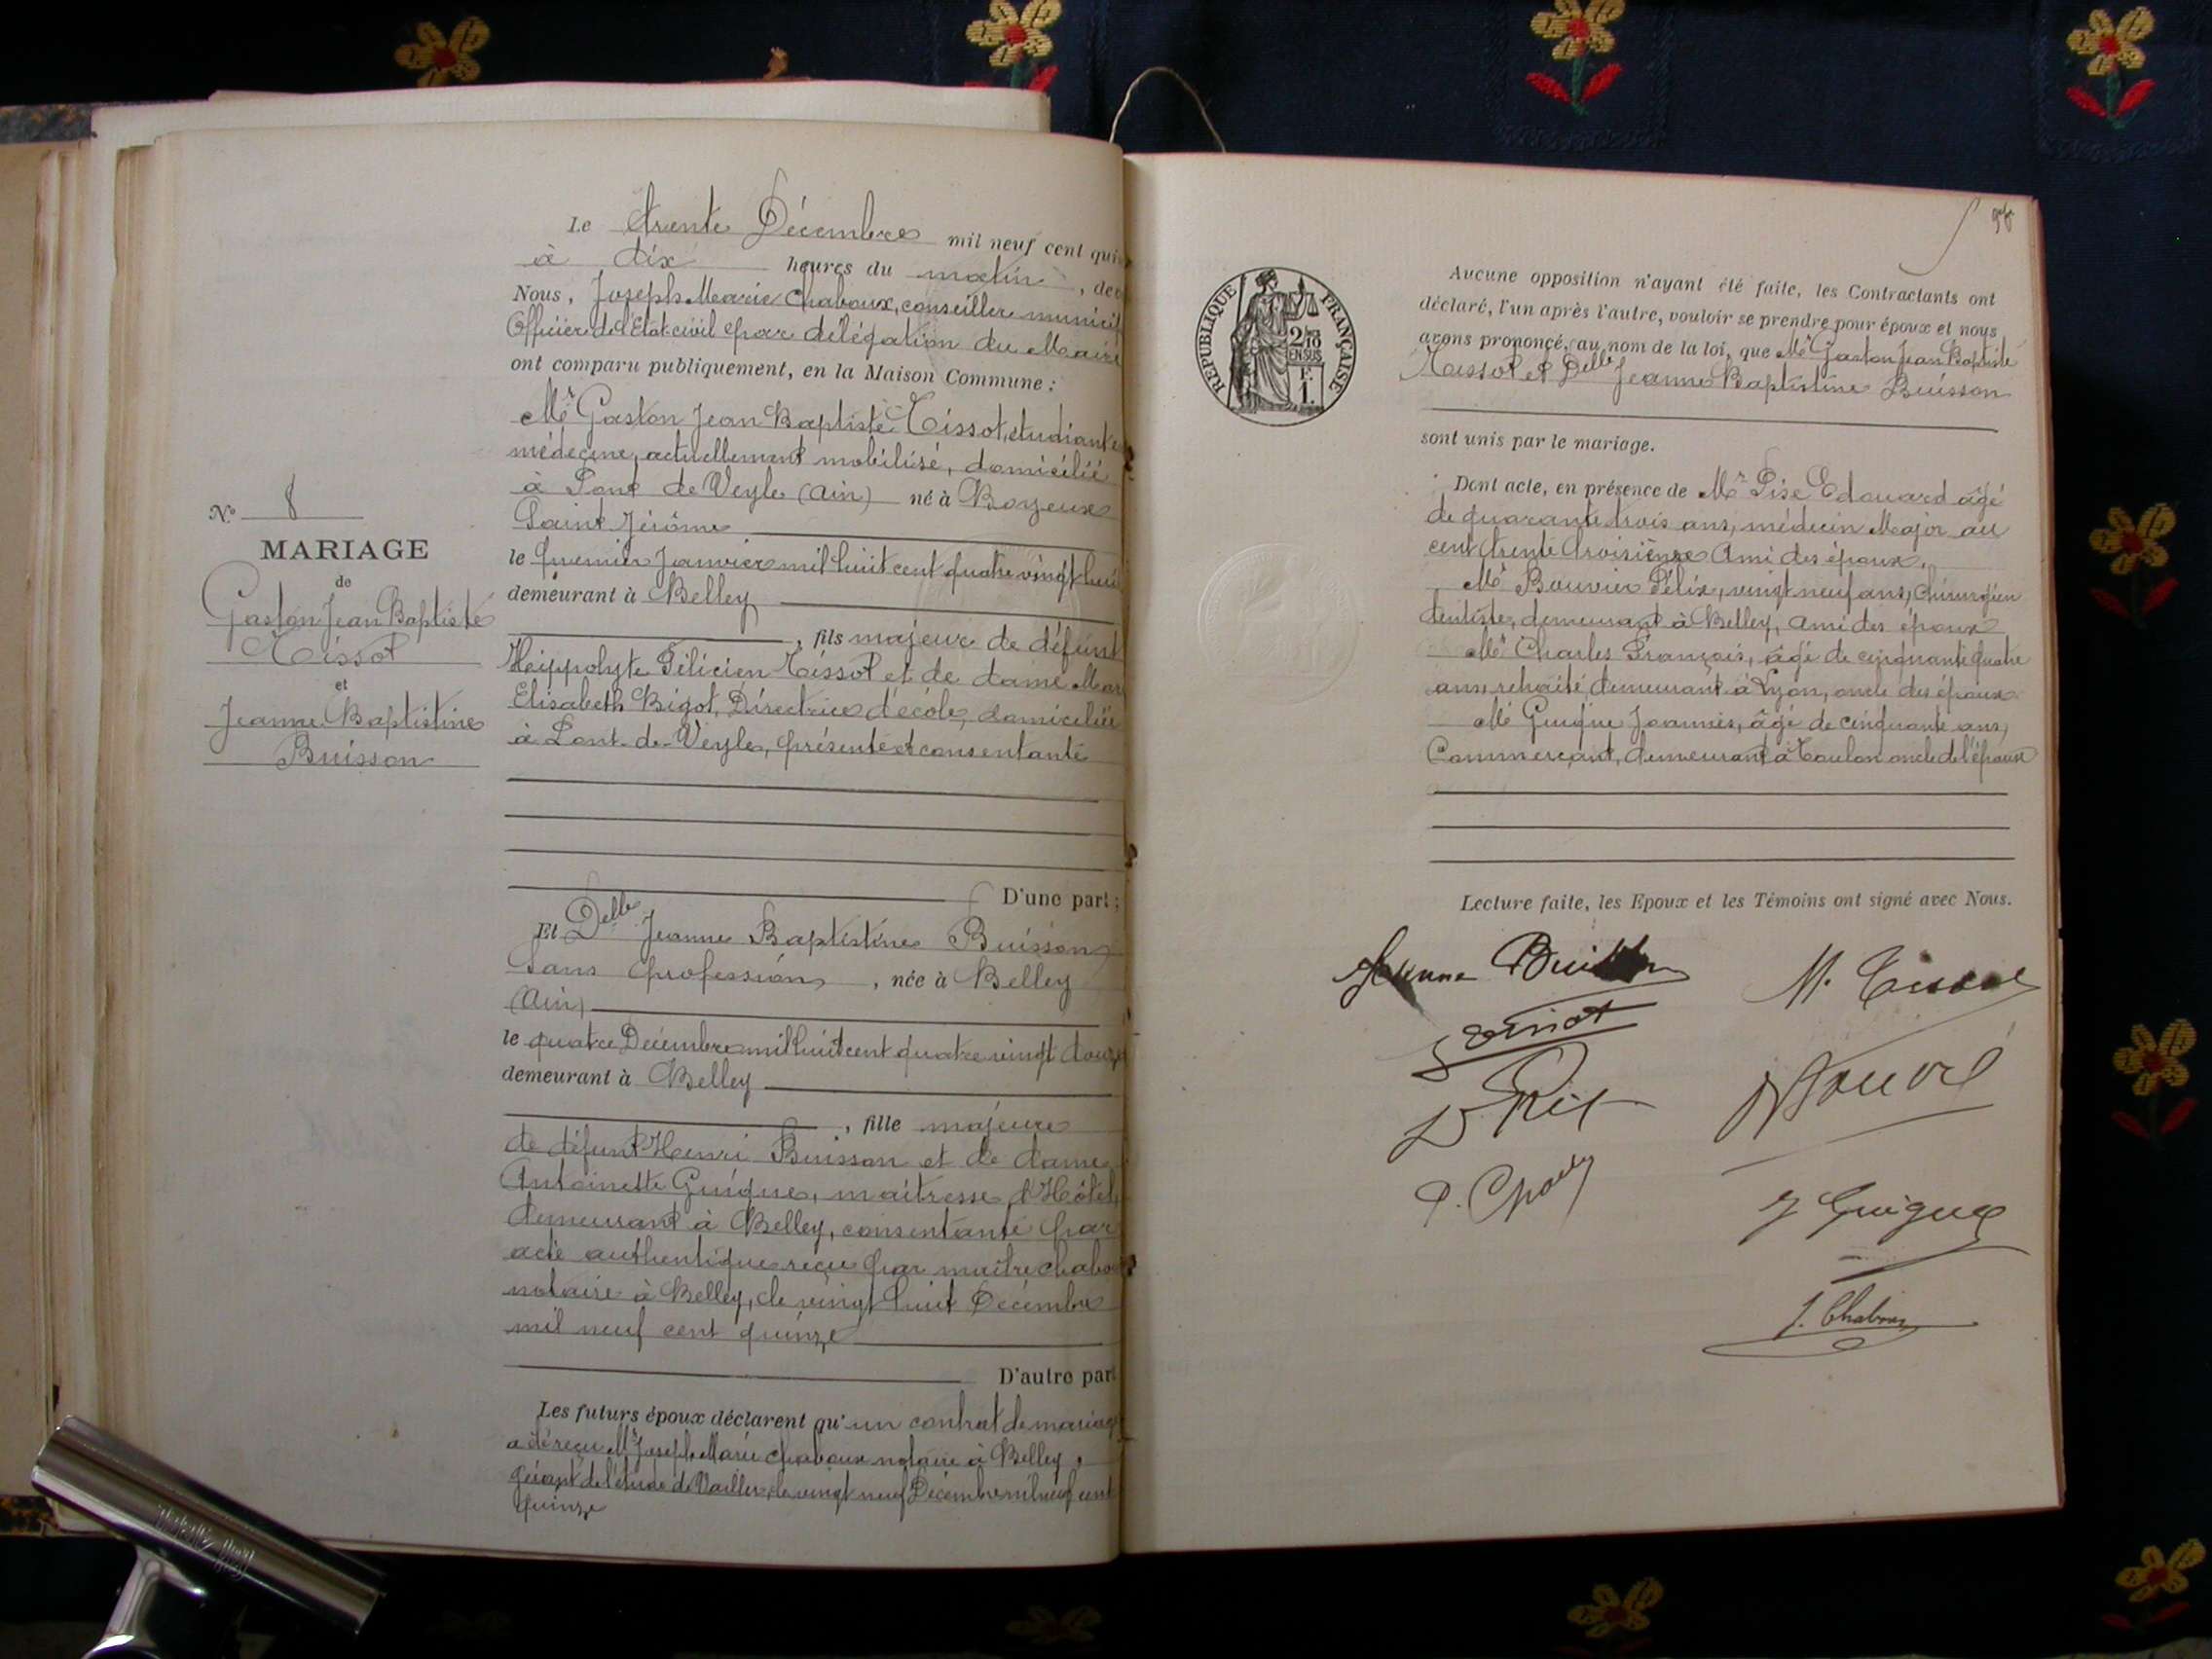 Le trente Décembre mil neuf cent qui
à dix heures du matin, de
Nous, Joseph Marie Chaboux, conseiller munici
Officier de l'Etat-civil par délégation du Maire
ont comparu publiquement, en la Maison Commune :
Mr Gaston Jean Baptiste Tissot, étudiant e
médecine, actuellement mobilisé, domicilié
à Pont de Veyle (Ain) né à Boyeux
Saint Jérôme
le premier Janvier mil huit cent quatre vingt hui
demeurant à Belley
, fils majeur de défunt
Hippolyte Félicien Tissot et de dame Mar
Elisabeth Bigot, Directrice d'école, domiciliée
à Pont-de-Veyle, présente et consentante
D'une part ;
Et Delle Jeanne Baptistine Buisson
Sans profession, née à Belley
(Ain)
le quatre Décembre mil huit cent quatre vingt douze
demeurant à Belley
, fille majeure
de défunt Henri Buisson et de dame
Antoinette Guigue, maitresse d'Hôtel,
demeurant à Belley, consentante par
acte authentique reçu par maitre Chabo
notaire à Belley, le vingt huit Décembre
mil neuf cent quinze
D'autre part
Les futurs époux déclarent qu'un contrat de mariage
a été reçu Me Joseph Marie Chaboux notaire à Belley,
gérant de l'étude de le vingt neuf Décembre mil neuf cent
quinze
No 8
MARIAGE
de
Gaston Jean Baptiste
Tissot
et
Jeanne Baptistine
Buisson
REPUBLIQUE FRANÇAISE
2/10
EN SUS
F.
1.
Aucune opposition n'ayant été faite, les Contractants ont
déclaré, l'un après l'autre, vouloir se prendre pour époux et nous
avons prononcé, au nom de la loi, que Mr Gaston Jean Baptiste
Tissot et Delle Jeanne Baptistine Buisson
sont unis par le mariage.
Dont acte, en présence de Mr Pise Edouard âgé
de quarante trois ans, médecin Major au
cent trente troisième Ami des époux,
Mr Bouvier Félix, vingt neuf ans, Chirurgien
dentiste, demeurant à Belley, ami des époux
Mr Charles François, âgé de cinquante quatre
ans retraité, demeurant à Lyon, oncle des époux
Mr Guigue Joannès, âgé de cinquante ans,
Commerçant, demeurant à Toulon oncle de l'époux
Lecture faite, les Epoux et les Témoins ont signé avec Nous.
Jeanne Buisson
M. Tissot
J Guigue
J. Chaboux